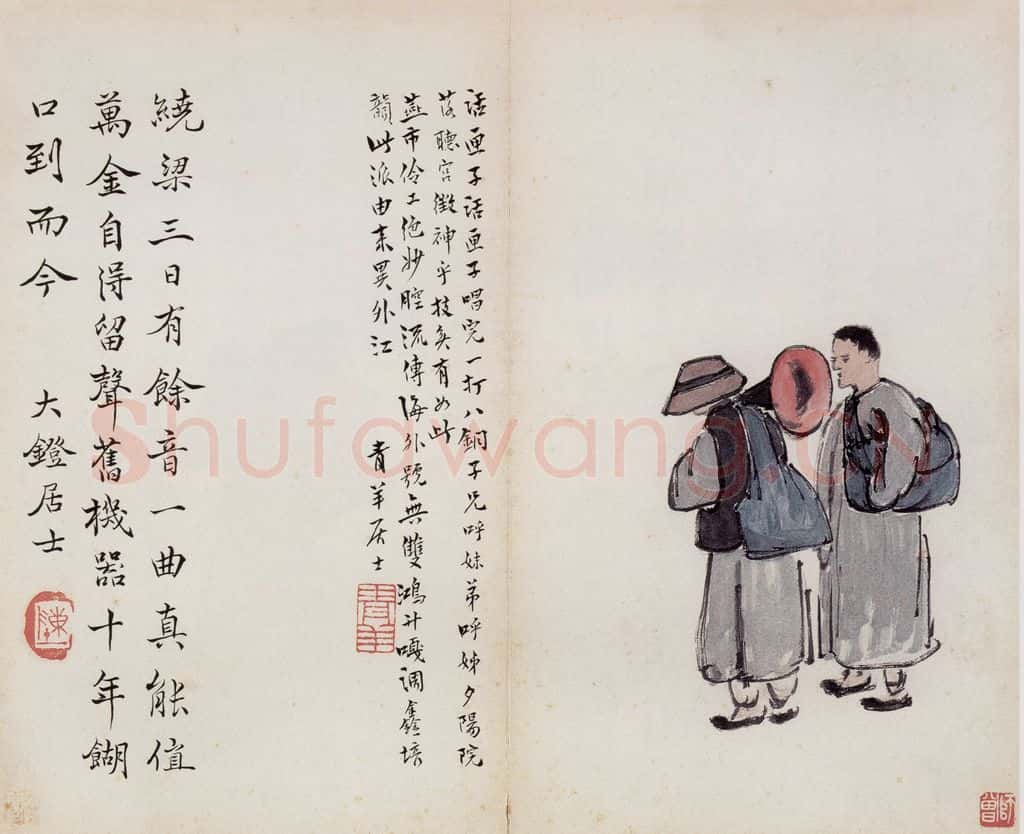 話匣子話匣子唱完一打八銅子兄呼妹弟呼姊夕陽院
落聽宮徵神乎技矣有如此
燕市伶工絶妙腔流傳海外號無雙鴻升嘎調鑫培
韻此派由來異外江 青羊居士
青羊
繞梁三日有餘音一曲真能值
萬金自得留聲舊機器十年餬
口到而今 大鐙居士
陳
師曾
Shufawang.CN